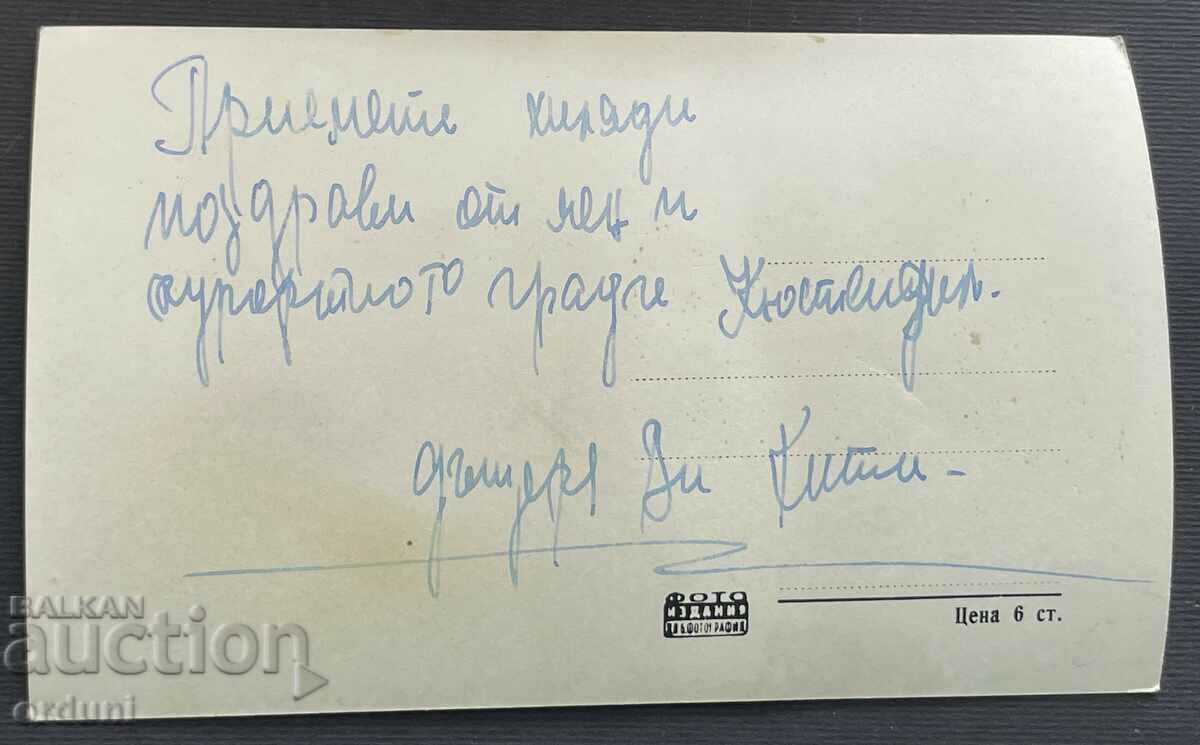 Приемете хиляди
поздрави от мен и
курортното градче Кюстендил.
дъщеря Ви Кити -
ФОТО
ИЗДАНИЕ
ДП БЪЛ.ФОТОГРАФИЯ
Цена 6 ст.
BALKAN
auction
orduni